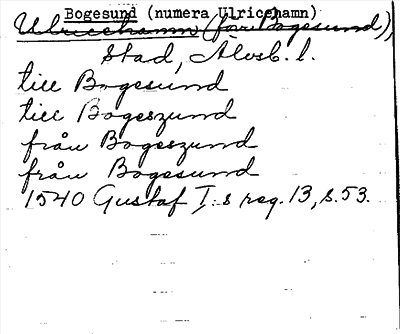 Bogesund (numera Ulricehamn)
Ulricehamn (förr Bogesund),
Stad, Älvsb. l.
till Bogesund
till Bogeszund
från Bogeszund
från Bogesund
1540 Gustaf I:s reg. 13, s. 53.